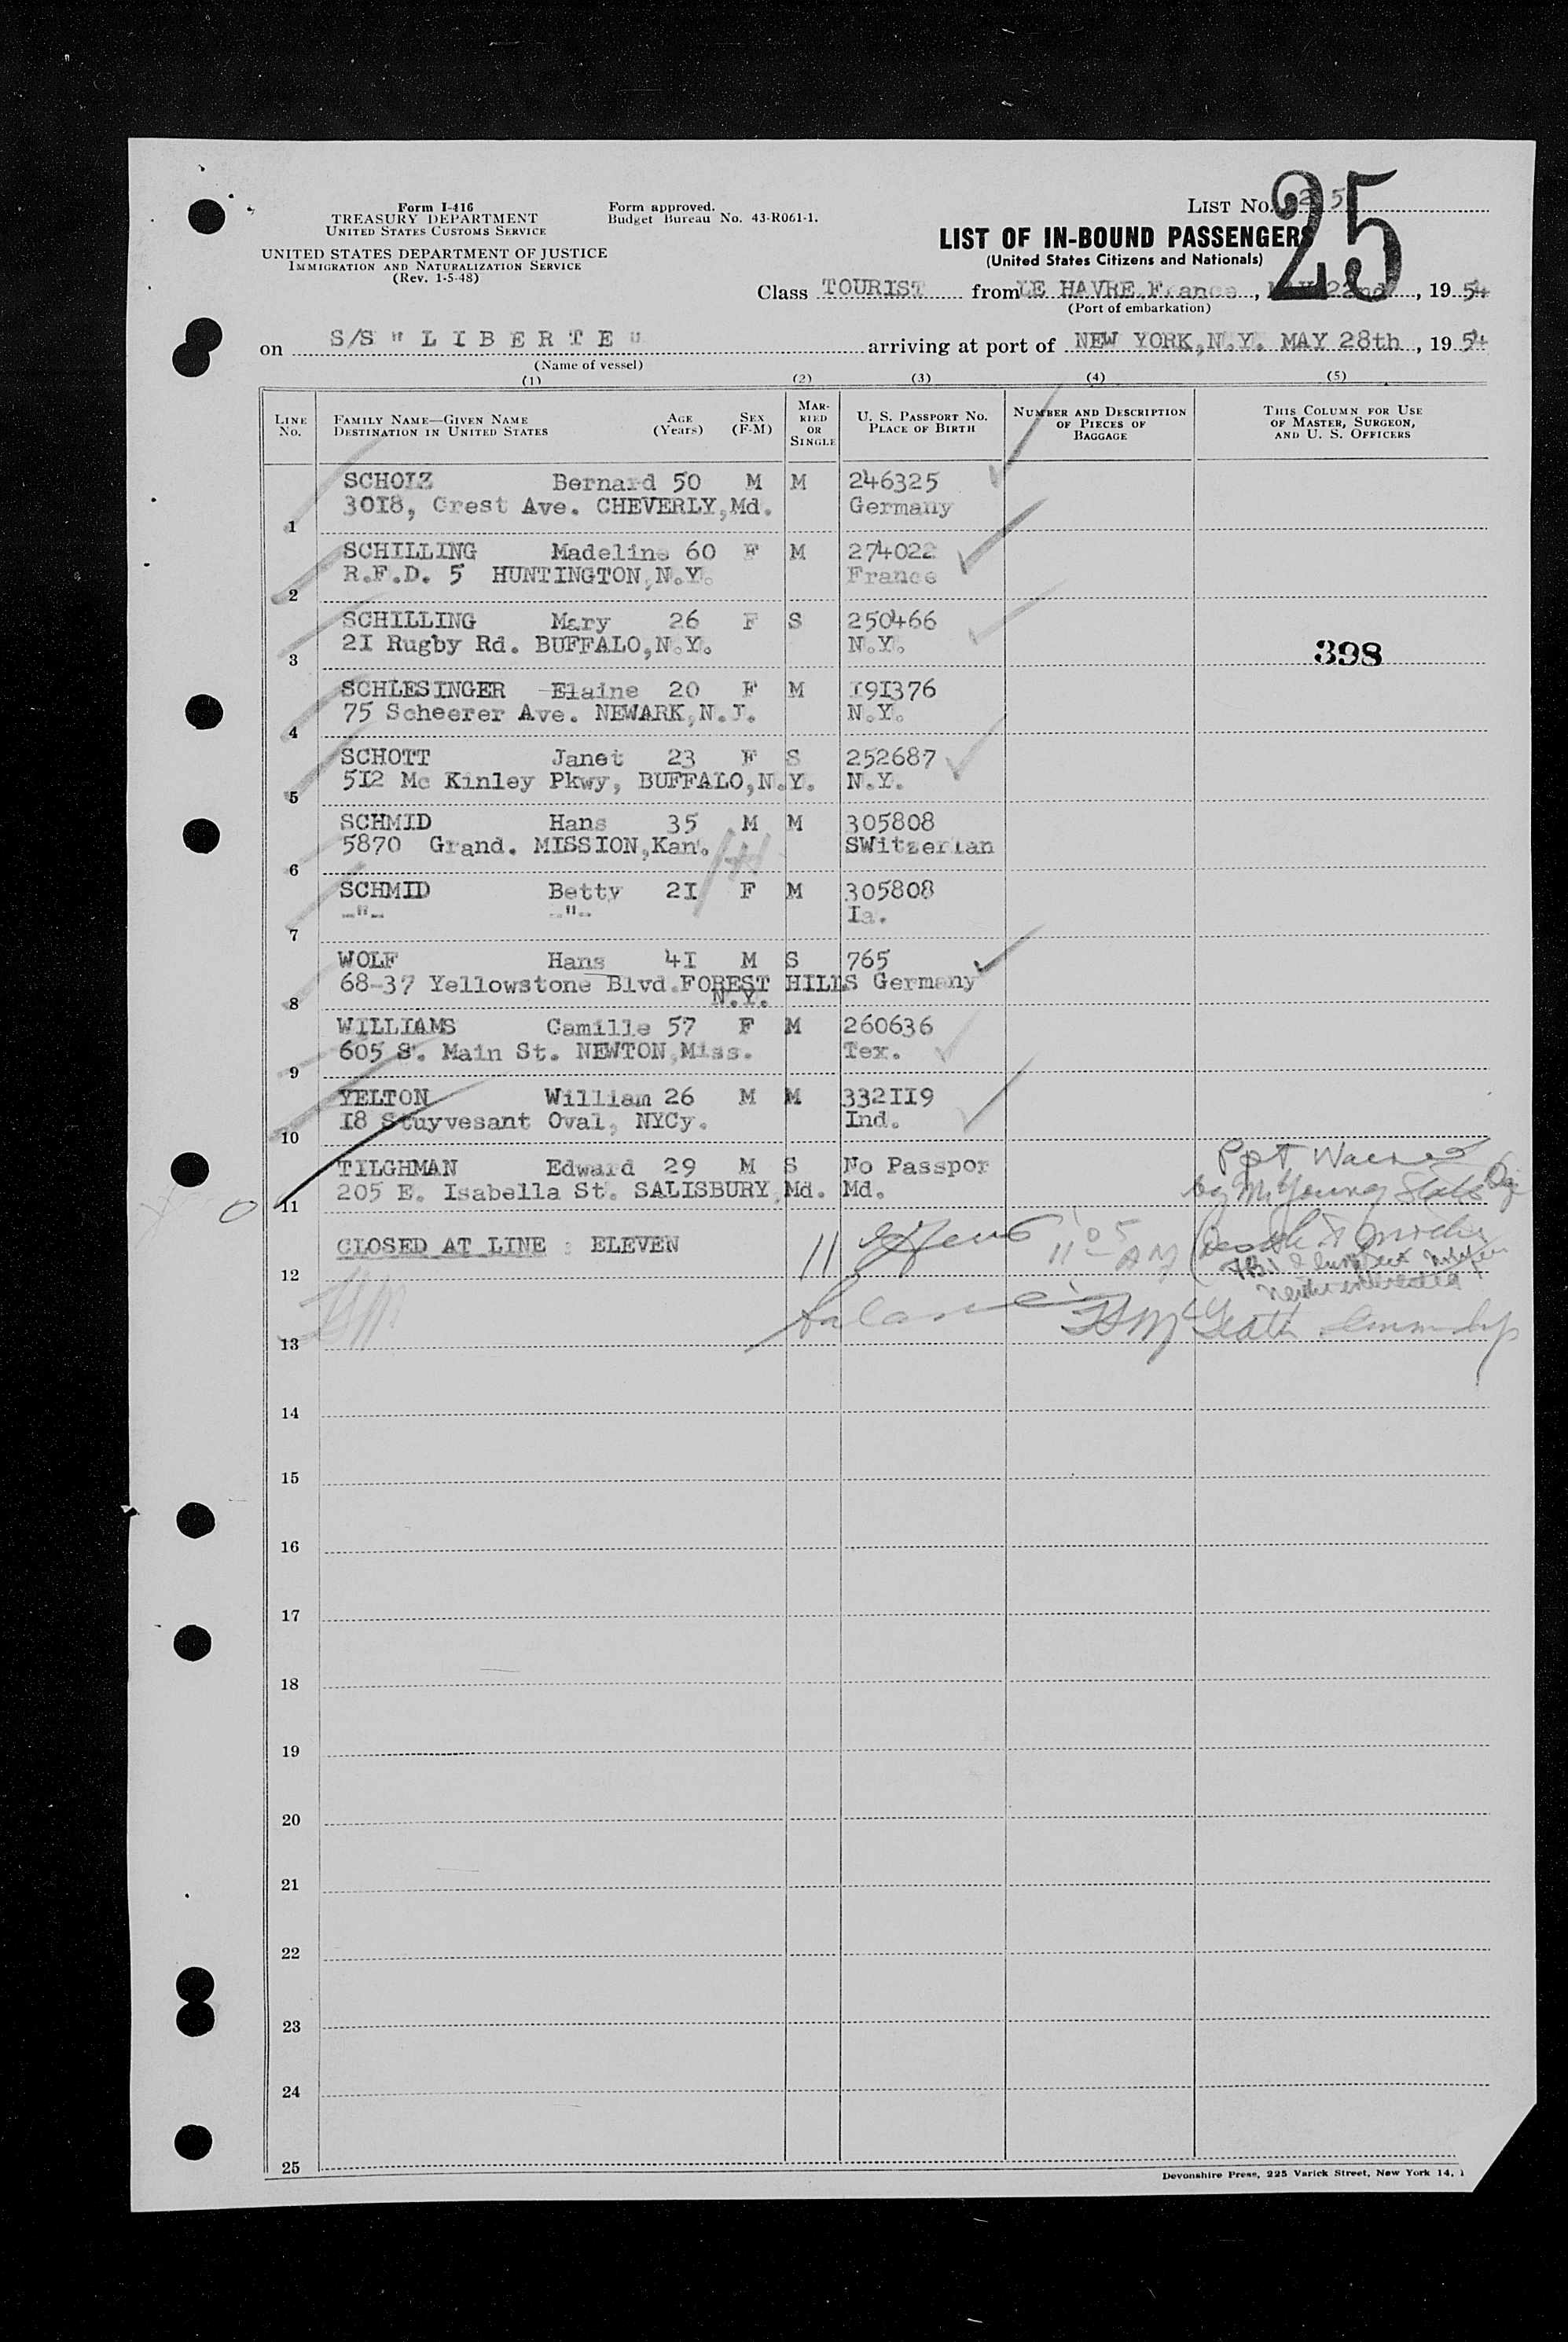 Form I-416
TREASURY DEPARTMENT
UNITED STATES CUSTOMS SERVICE
UNITED STATES DEPARTMENT OF JUSTICE
IMMIGRATION AND NATURALIZATION SERVICE
(Rev. 1-5-48)
Form approved.
Budget Bureau No. 43-R061-1.
LIST NO. 25
25
LIST OF IN-BOUND PASSENGERS
(United States Citizens and Nationals)
Class TOURIST from LE HAVRE,France, MAY 22nd, 1954
(Port of embarkation)
on S/S " L I B E R T E " arriving at port of NEW YORK,N.Y. MAY 28th, 1954
(Name of vessel)
(1) (2) (3) (4) (5)
LINE No.
FAMILY NAME—GIVEN NAME
DESTINATION IN UNITED STATES
AGE (Years)
SEX (F-M)
MARRIED OR SINGLE
U. S. PASSPORT NO.
PLACE OF BIRTH
NUMBER AND DESCRIPTION OF PIECES OF BAGGAGE
THIS COLUMN FOR USE OF MASTER, SURGEON, AND U. S. OFFICERS
SCHOIZ Bernard 50 M M 246325
1 3018, Crest Ave. CHEVERLY,Md. Germany
SCHILLING Madeline 60 F M 274022
2 R.F.D. 5 HUNTINGTON,N.Y. France
SCHILLING Mary 26 F S 250466
3 21 Rugby Rd. BUFFALO,N.Y. N.Y. 398
SCHLESINGER Elaine 20 F M 191376
4 75 Scheerer Ave. NEWARK,N.J. N.Y.
SCHOTT Janet 23 F S 252687
5 512 Mc Kinley Pkwy, BUFFALO,N.Y. N.Y.
SCHMID Hans 35 M M 305808
6 5870 Grand. MISSION,Kan. SWitzerlan
SCHMID Betty 21 F M 305808
7 -"- -"- Ia.
WOLF Hans 41 M S 765
8 68-37 Yellowstone Blvd.FOREST HILLS Germany
N.Y.
WILLIAMS Camille 57 F M 260636
9 605 S. Main St. NEWTON,Miss. Tex.
YELTON William 26 M M 332119
10 18 Stuyvesant Oval, NYCy. Ind.
TILGHMAN Edward 29 M S No Passpor
11 205 E. Isabella St. SALISBURY,Md. Md.
Ppt Waived
by Mr Young State
CLOSED AT LINE : ELEVEN
11
11 05 AM
12
13
14
15
16
17
18
19
20
21
22
23
24
25
Devonshire Press, 225 Varick Street, New York 14,